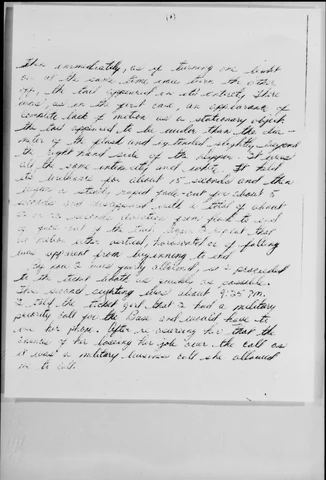 then immediately, as if turning one light
on at the same time turn the other
off, the tail appeared in its entirety. There
was, as in the first case, an appearance of
complete lack of motion as a stationary object.
The tail appeared to be wider than the dia-
meter of the flash and extended slightly beyond
the right hand side of the dipper. It was
all the same intensity and white. It held
its brilliance for about 15 seconds and then
began a steady rapid fade-out for about 5
seconds and disappeared with a total of about
seconds duration from flash to end
of fade out of the tail. Again I repeat that
no motion either vertical, horizontal or of falling
was apparent from beginning to end.
By now I was greatly alarmed, so I proceeded
to the ticket booth as quickly as possible.
The second sighting was about 9:35 PM.
I told the ticket girl that I had a military
priority call for the Base and would have to
use her phone. After reassuring her that the
chance of her losing her job over the call as
it was a military business call she allowed
me to call.